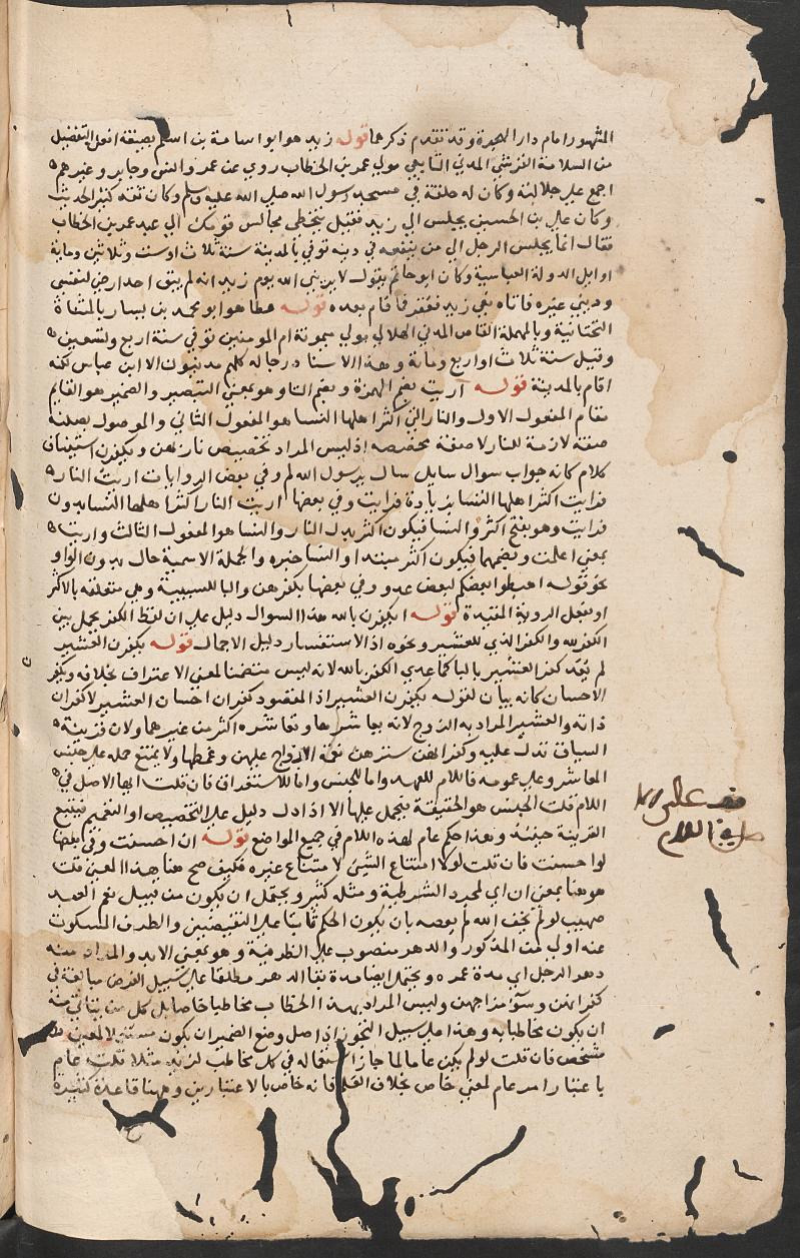 المشهور امام دار الهجرة وقد تقدم ذكرهما قوله زيد هو ابو اسامة بن اسلم بصيغة افعل التفضيل
من السلامة القرشي المدني التابعي مولي عمر بن الخطاب روي عن عمر وانس وجابر وغيرهم
اجمع علي جلالته وكان له حلقة في مسجد رسول الله صلي الله عليه وسلم وكان ثقة كثير الحديث
وكان علي بن الحسين يجلس الي زيد فقيل يتخطي مجالس قومك الي عبد عمر بن الخطاب
فقال انما يجلس الرجل الي من ينفعه في دينه توفي بالمدينة سنة ثلاث او ست وثلاثين وماية
اوايل الدولة العباسية وكان ابو حاتم يقول لا يريني الله يوم زيد انه لم يبق احد ارضي لنفسي
وديني غيره فاتاه نعي زيد فعقر فما قام بعده قوله عطا هو ابو محمد بن يسار بالمثناة
التحتانية وبالمهملة القاص المدني الهلالي مولي ميمونة ام المومنين توفي سنة اربع وتسعين
وقيل سنة ثلاث او اربع وماية وهذا الاسناد رجاله كلهم مدنيون الا ابن عباس لكنه
اقام بالمدينة قوله اريت بضم الهمزة وبضم التا وهو بمعني التبصير والضمير هو القايم
مقام المفعول الاول والنار التي اكثر اهلها النسا هو المفعول الثاني والموصول بصلته
صفة لازمة للنار لا صفة مخصصه اذ ليس المراد تخصيص نار بهن ويكفرن استيناف
كلام كانه جواب سوال سايل سال يرسول الله لم وفي بعض الروايات اريت النار
فرايت اكثر اهلها النسا بزيادة فرايت وفي بعضها اريت النار اكثر اهلها النسا بدون
فرايت وهو بفتح اكثر والنسا فيكون اكثر بدل النار والنسا هو المفعول الثالث واريت
بمعني اعلمت وبضمهما فيكون اكثر مبتدا والنسا خبره والجملة الاسمية حال بدون الواو
نحو قوله اهبطوا بعضكم لبعض عدو وفي بعضها بكفرهن والبا للسببية وهي متعلقة بالاكثر
او بفعل الروية المقيدة قوله ايكفرن بالله هذا السوال دليل علي ان لفظ الكفر يحمل بين
الكفر بالله والكفر الذي للعشير ونحوه اذ الاستفسار دليل الاجمال قوله يكفرن العشير
لم يعد كفر العشير بالبا كما عدي الكفر بالله لانه ليس متضمنا لمعني الاعتراف بخلافه وكفر
الاحسان كانه بيان لقوله يكفرن العشير اذ المقصود كفران احسان العشير لا كفران
ذاته والعشير المراد به الزوج لانه يعاشرها وتعاشره اكثر من غيرهما ولان قرينة
السياق تدل عليه وكفرانهن سترهن نعمة الازواج عليهن وغمطها ولا يمتنع حمله علي جنس
المعاشر وعلي عمومه فاللام للعهد واما للجنس واما للاستغراق فان قلت ايها الاصل في
اللام قلت الجنس هو الحقيقة يحمل عليها الا اذا دل دليل علي التخصيص او التعميم فيتبع
القرينة حينئذ وهذا حكم عام لهذه اللام في جميع المواضع قوله ان احسنت وفي بعضها
لو احسنت فان قلت لو لامتناع الشي لامتناع غيره فكيف صح هنا هذا المعني قلت
هو هنا بمعني ان اي لمجرد الشرطية ومثله كثير ويحتمل ان يكون من قبيل نعم العبد
صهيب لو لم يخف الله لم يعصه بان يكون الحكم ثابتا علي النقيضين والطرف المسكوت
عنه اولي من المذكور والدهر منصوب علي الظرفية وهو بمعني الابد والمراد منه
دهر الرجل اي مدة عمره ويحتمل ايضا مدة بقا الدهر مطلقا علي سبيل الفرض مبالغة في
كفرانهن وسو مزاجهن وليس المراد بهذا الخطاب مخاطبا خاصا بل كل من يتاتي منه
ان يكون مخاطبا به وهذا علي سبيل التجوز اذ اصل وضع الضمير ان يكون مستعملا لمعين
مشخص فان قلت لو لم يكن عاما لما جاز استعماله في كل مخاطب لزيد مثلا قلت عام
باعتبار امر عام لمعني خاص بخلاف العلم فانه خاص بالاعتبارين وههنا قاعدة كثيرة
اللام